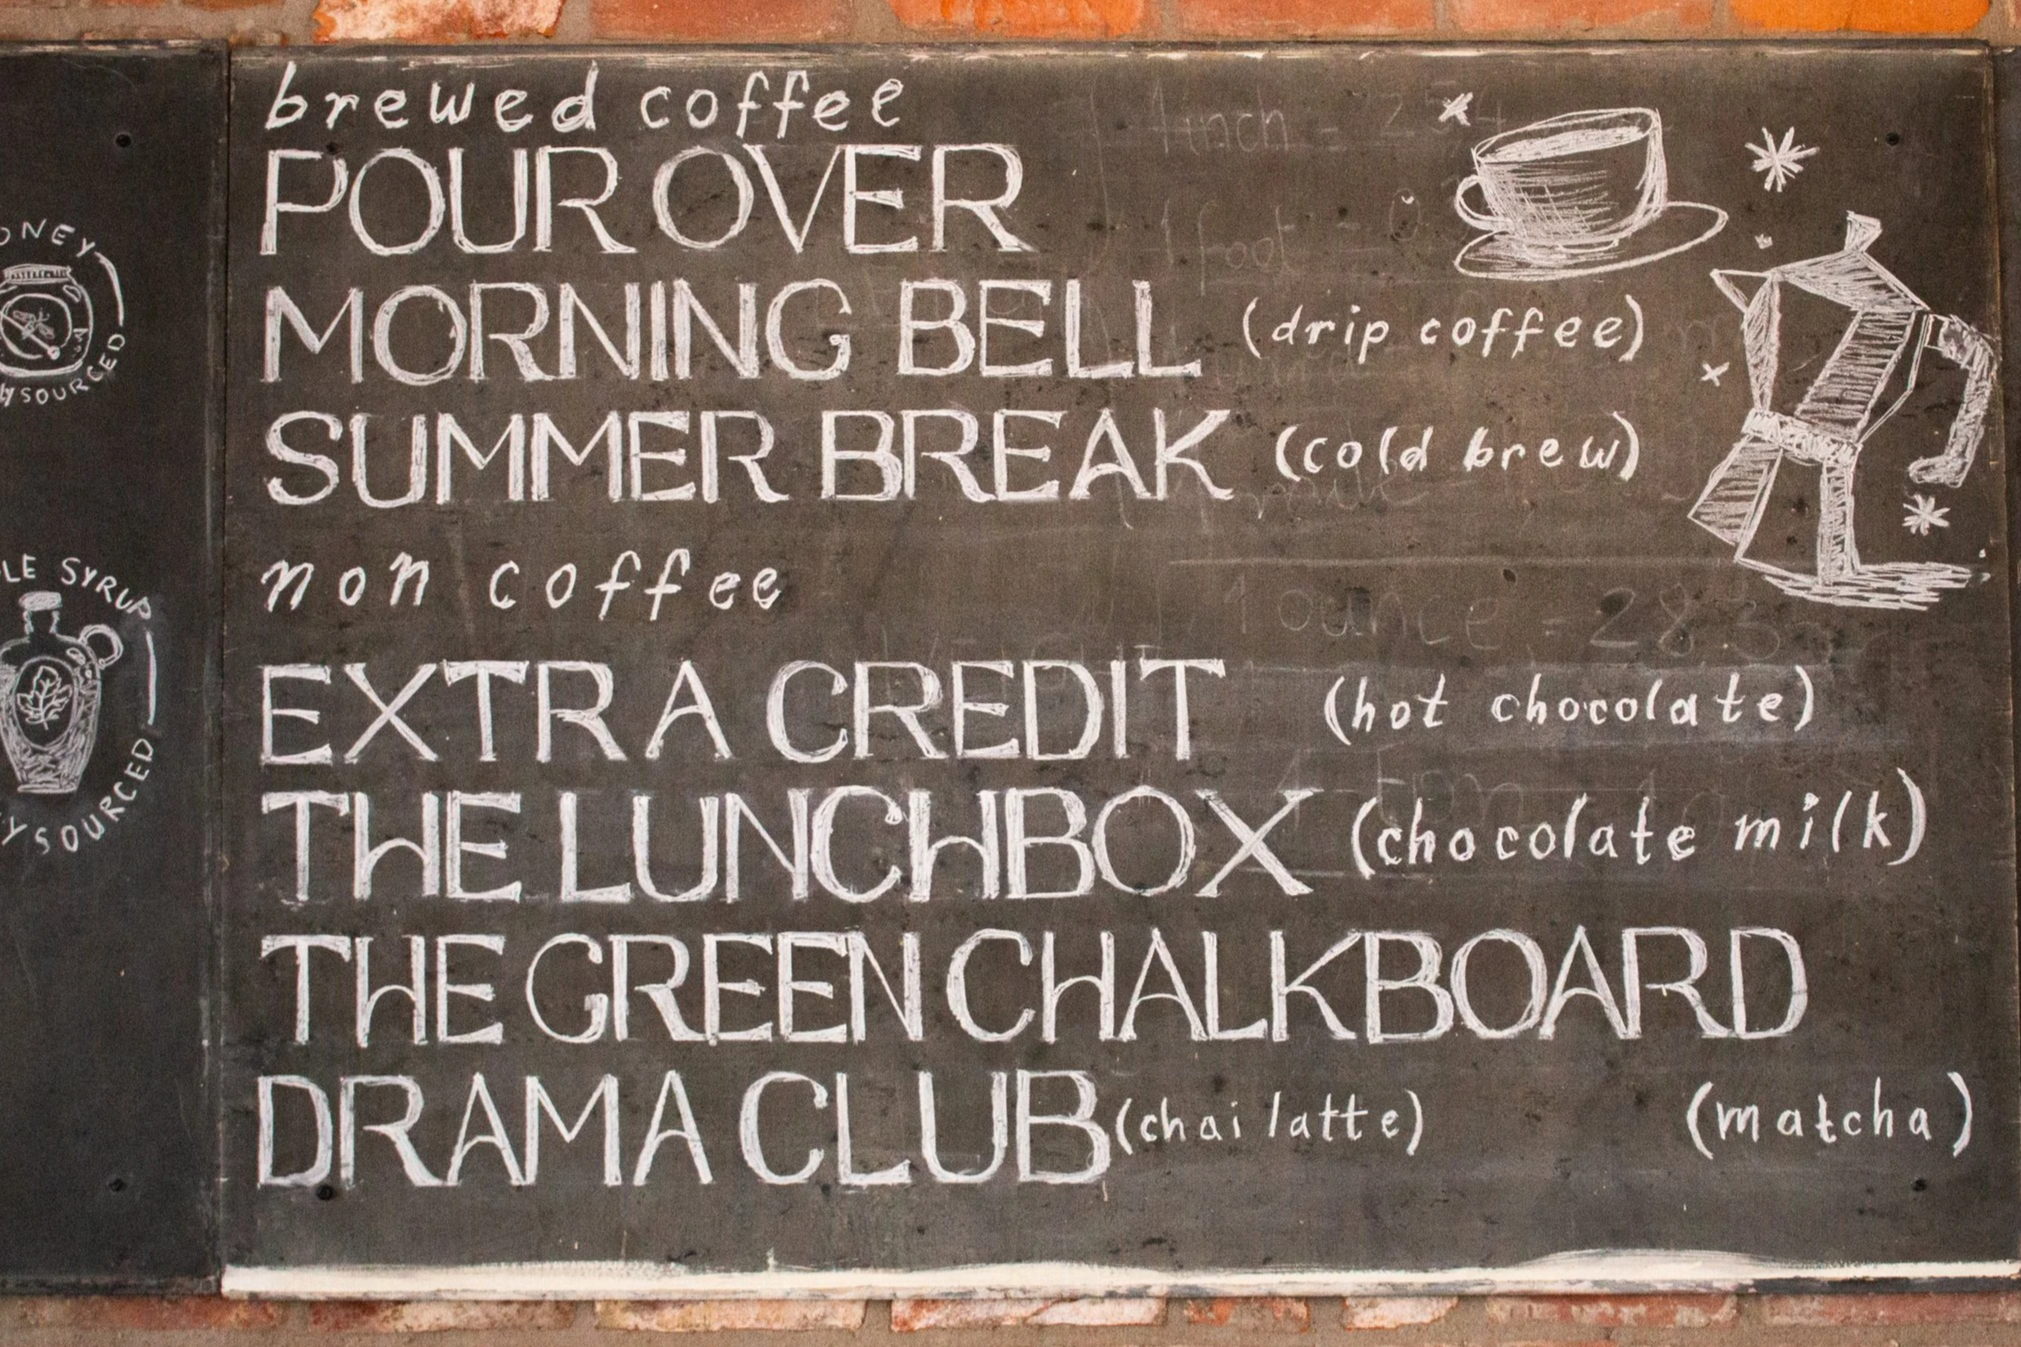 brewed coffee
POUR OVER
MORNING BELL (drip coffee)
SUMMER BREAK (cold brew)
non coffee
EXTRA CREDIT (hot chocolate)
THE LUNCHBOX (chocolate milk)
THE GREEN CHALKBOARD
(matcha)
DRAMA CLUB (chai latte)
ONEY
YSOURCED
LE SYRUP
YSOURCED
1 inch = 254
1 foot
milk
1 ounce = 28.3